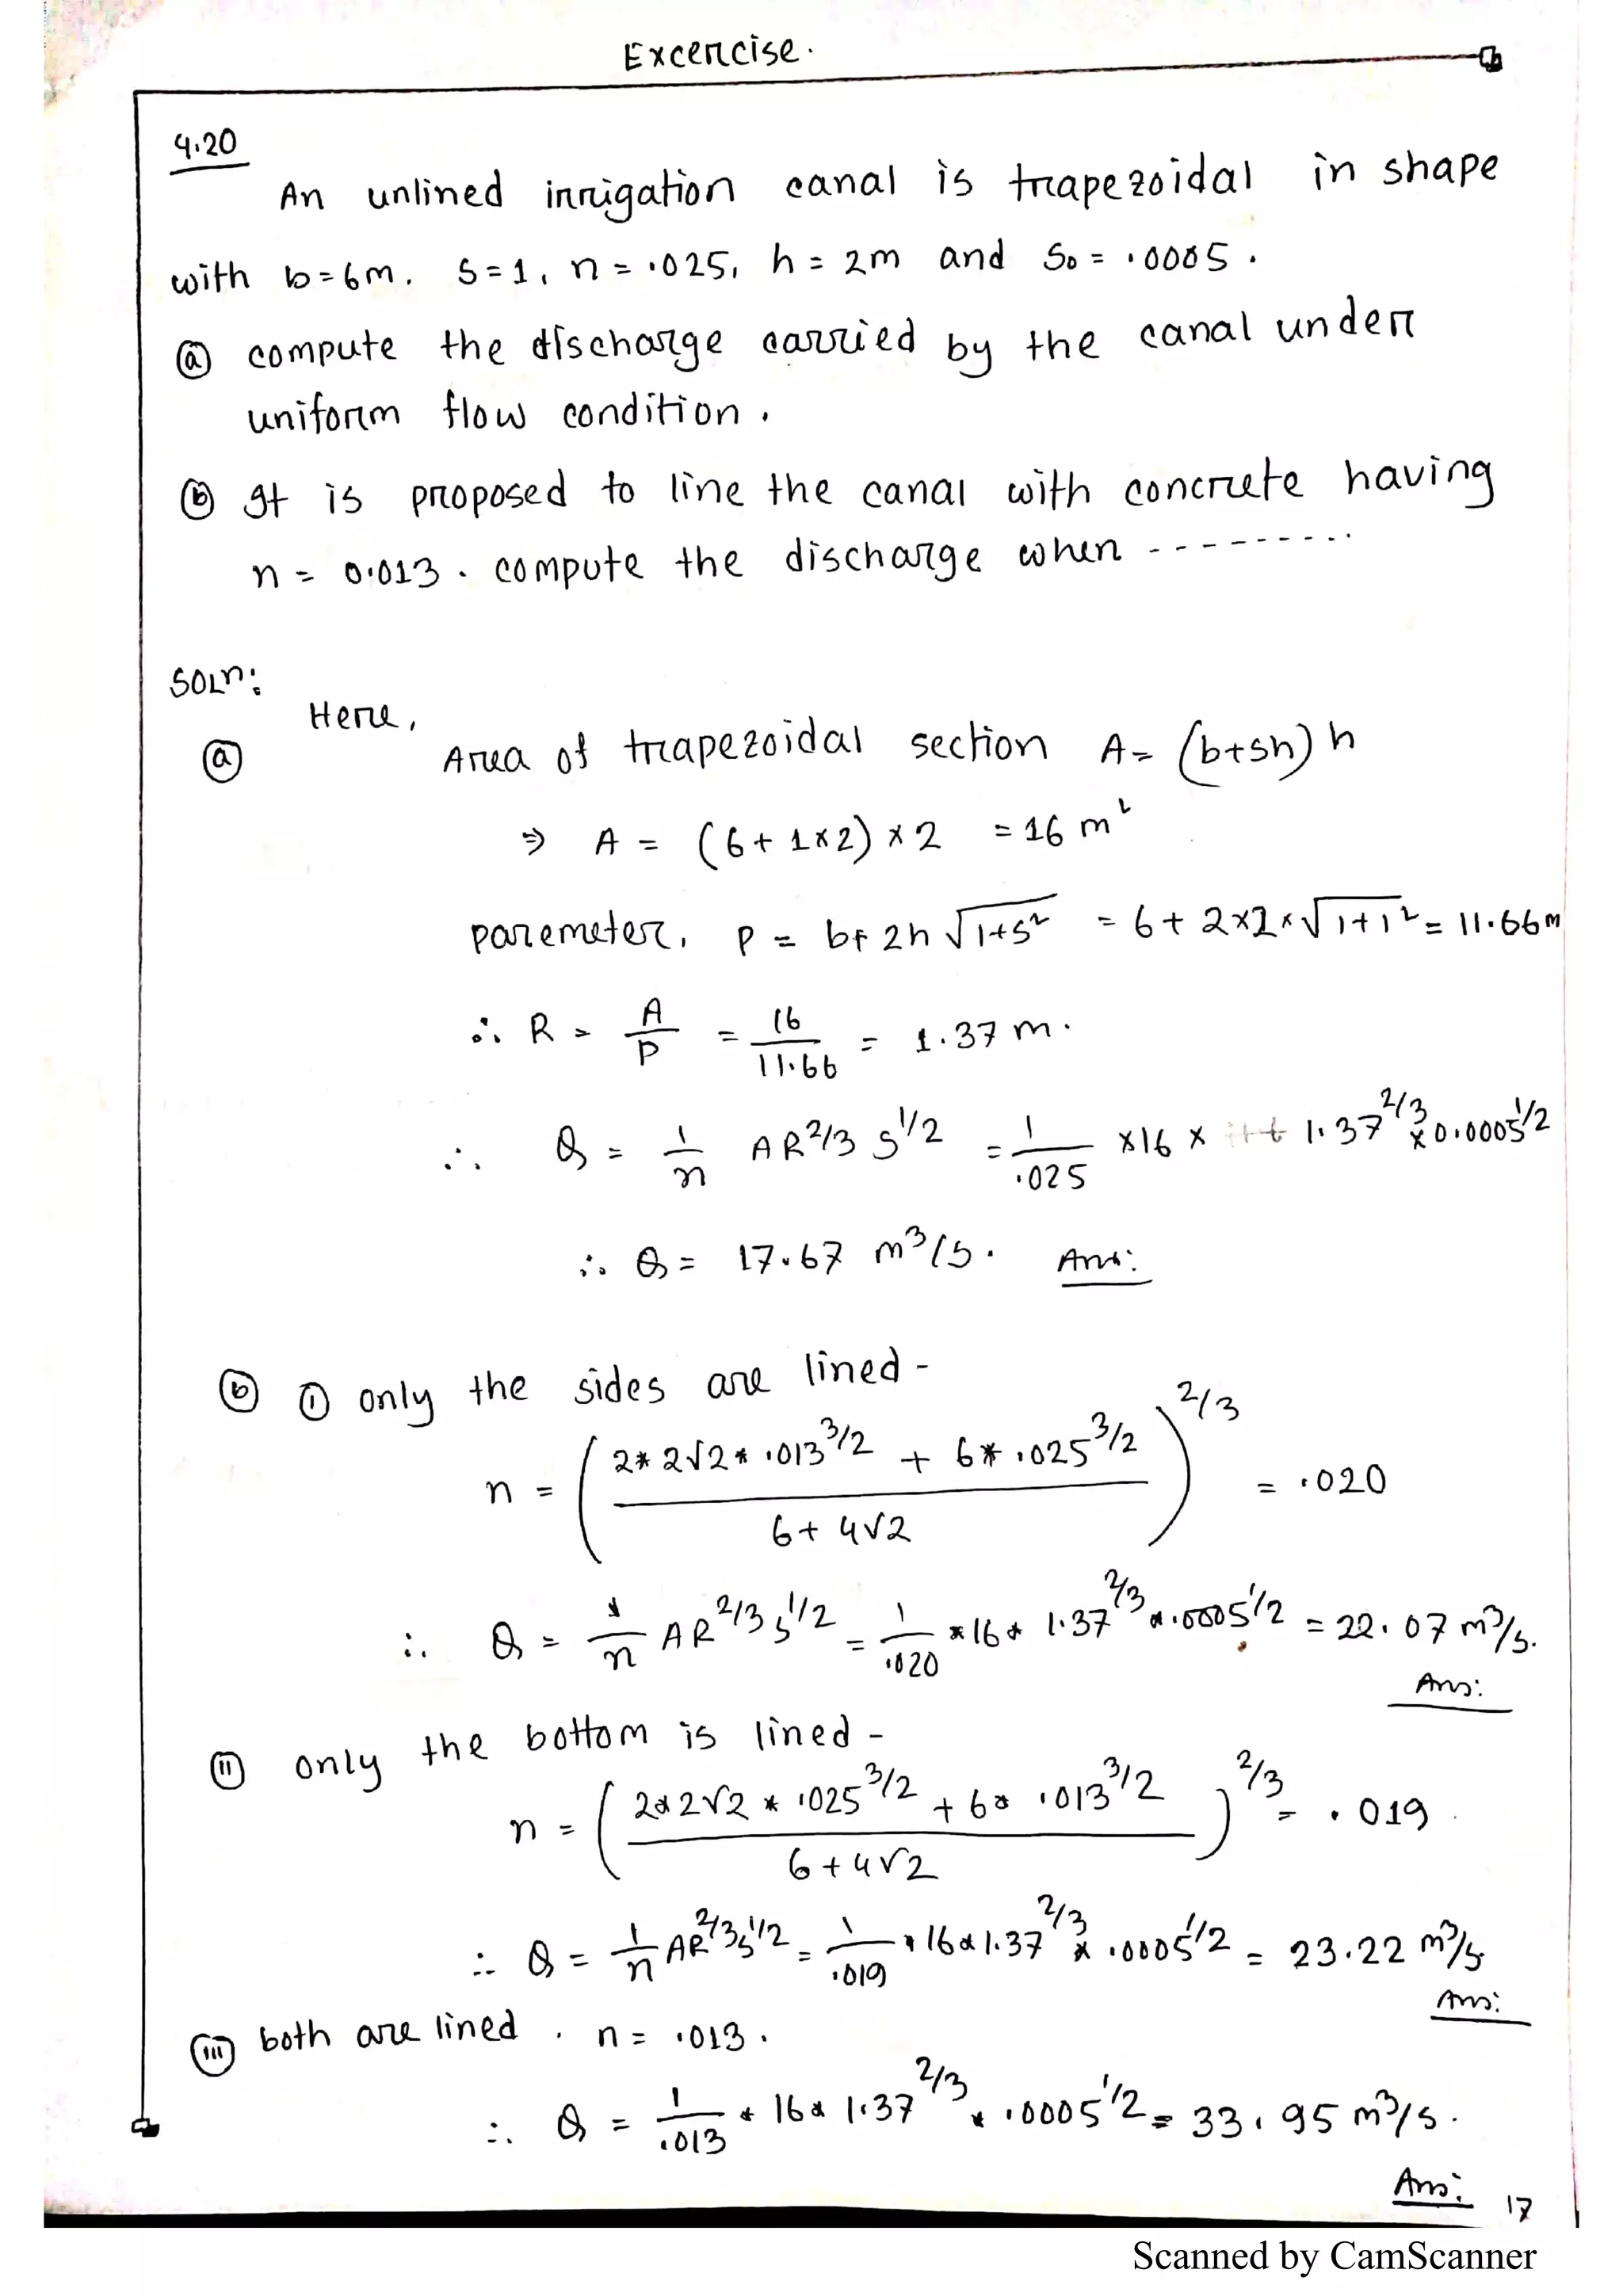 Excercise.
4.20
An unlined irrigation canal is trapezoidal in shape
with b=6m, S=1, n=.025, h=2m and S₀=.0005.
ⓐ compute the discharge carried by the canal under
uniform flow condition.
ⓑ It is proposed to line the canal with concrete having
n = 0.013. compute the discharge when ----------
SOLn:
Here,
ⓐ Area of trapezoidal section A= (b+sh) h
⇒ A = (6+1×2)×2 = 16 m²
paremeter, P = b+2h √1+s² = 6+2×2×√1+1² = 11.66m
∴ R = A/P = 16/11.66 = 1.37 m.
∴ Q = 1/n AR^2/3 S^1/2 = 1/.025 ×16× 1.37^2/3 ×0.0005^1/2
∴ Q = 17.67 m³/s. Ans:
ⓑ ⓘ only the sides are lined -
n = ( (2*2√2*.013^3/2 + 6*.025^3/2) / (6+4√2) )^2/3 = .020
∴ Q = 1/n AR^2/3 S^1/2 = 1/.020 *16* 1.37^2/3 *.0005^1/2 = 22.07 m³/s.
Ans:
ⓘⓘ only the bottom is lined -
n = ( (2*2√2*.025^3/2 + 6*.013^3/2) / (6+4√2) )^2/3 = .019
∴ Q = 1/n AR^2/3 S^1/2 = 1/.019 *16*1.37^2/3 * .0005^1/2 = 23.22 m³/s
Ans:
ⓘⓘⓘ both are lined. n = .013.
∴ Q = 1/.013 * 16* 1.37^2/3 * .0005^1/2 = 33.95 m³/s.
Ans:
17
Scanned by CamScanner